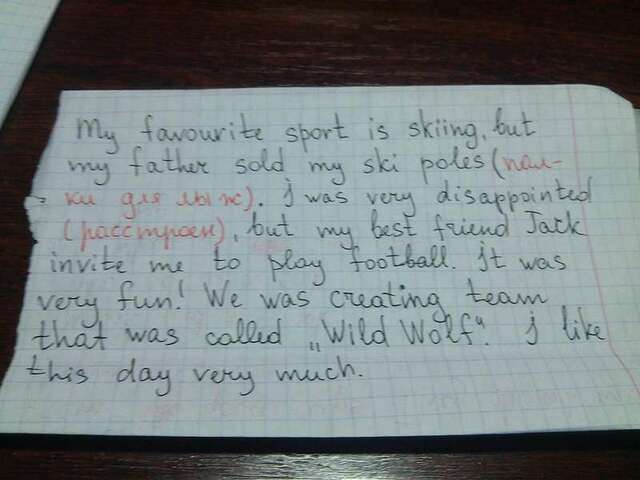 My favourite sport is skiing, but
my father sold my ski poles (пал-
ки для лыж). J was very disappointed
(расстроен), but my best friend Jack
invite me to play football. Jt was
very fun! We was creating team
that was called „Wild Wolf“. J like
this day very much.